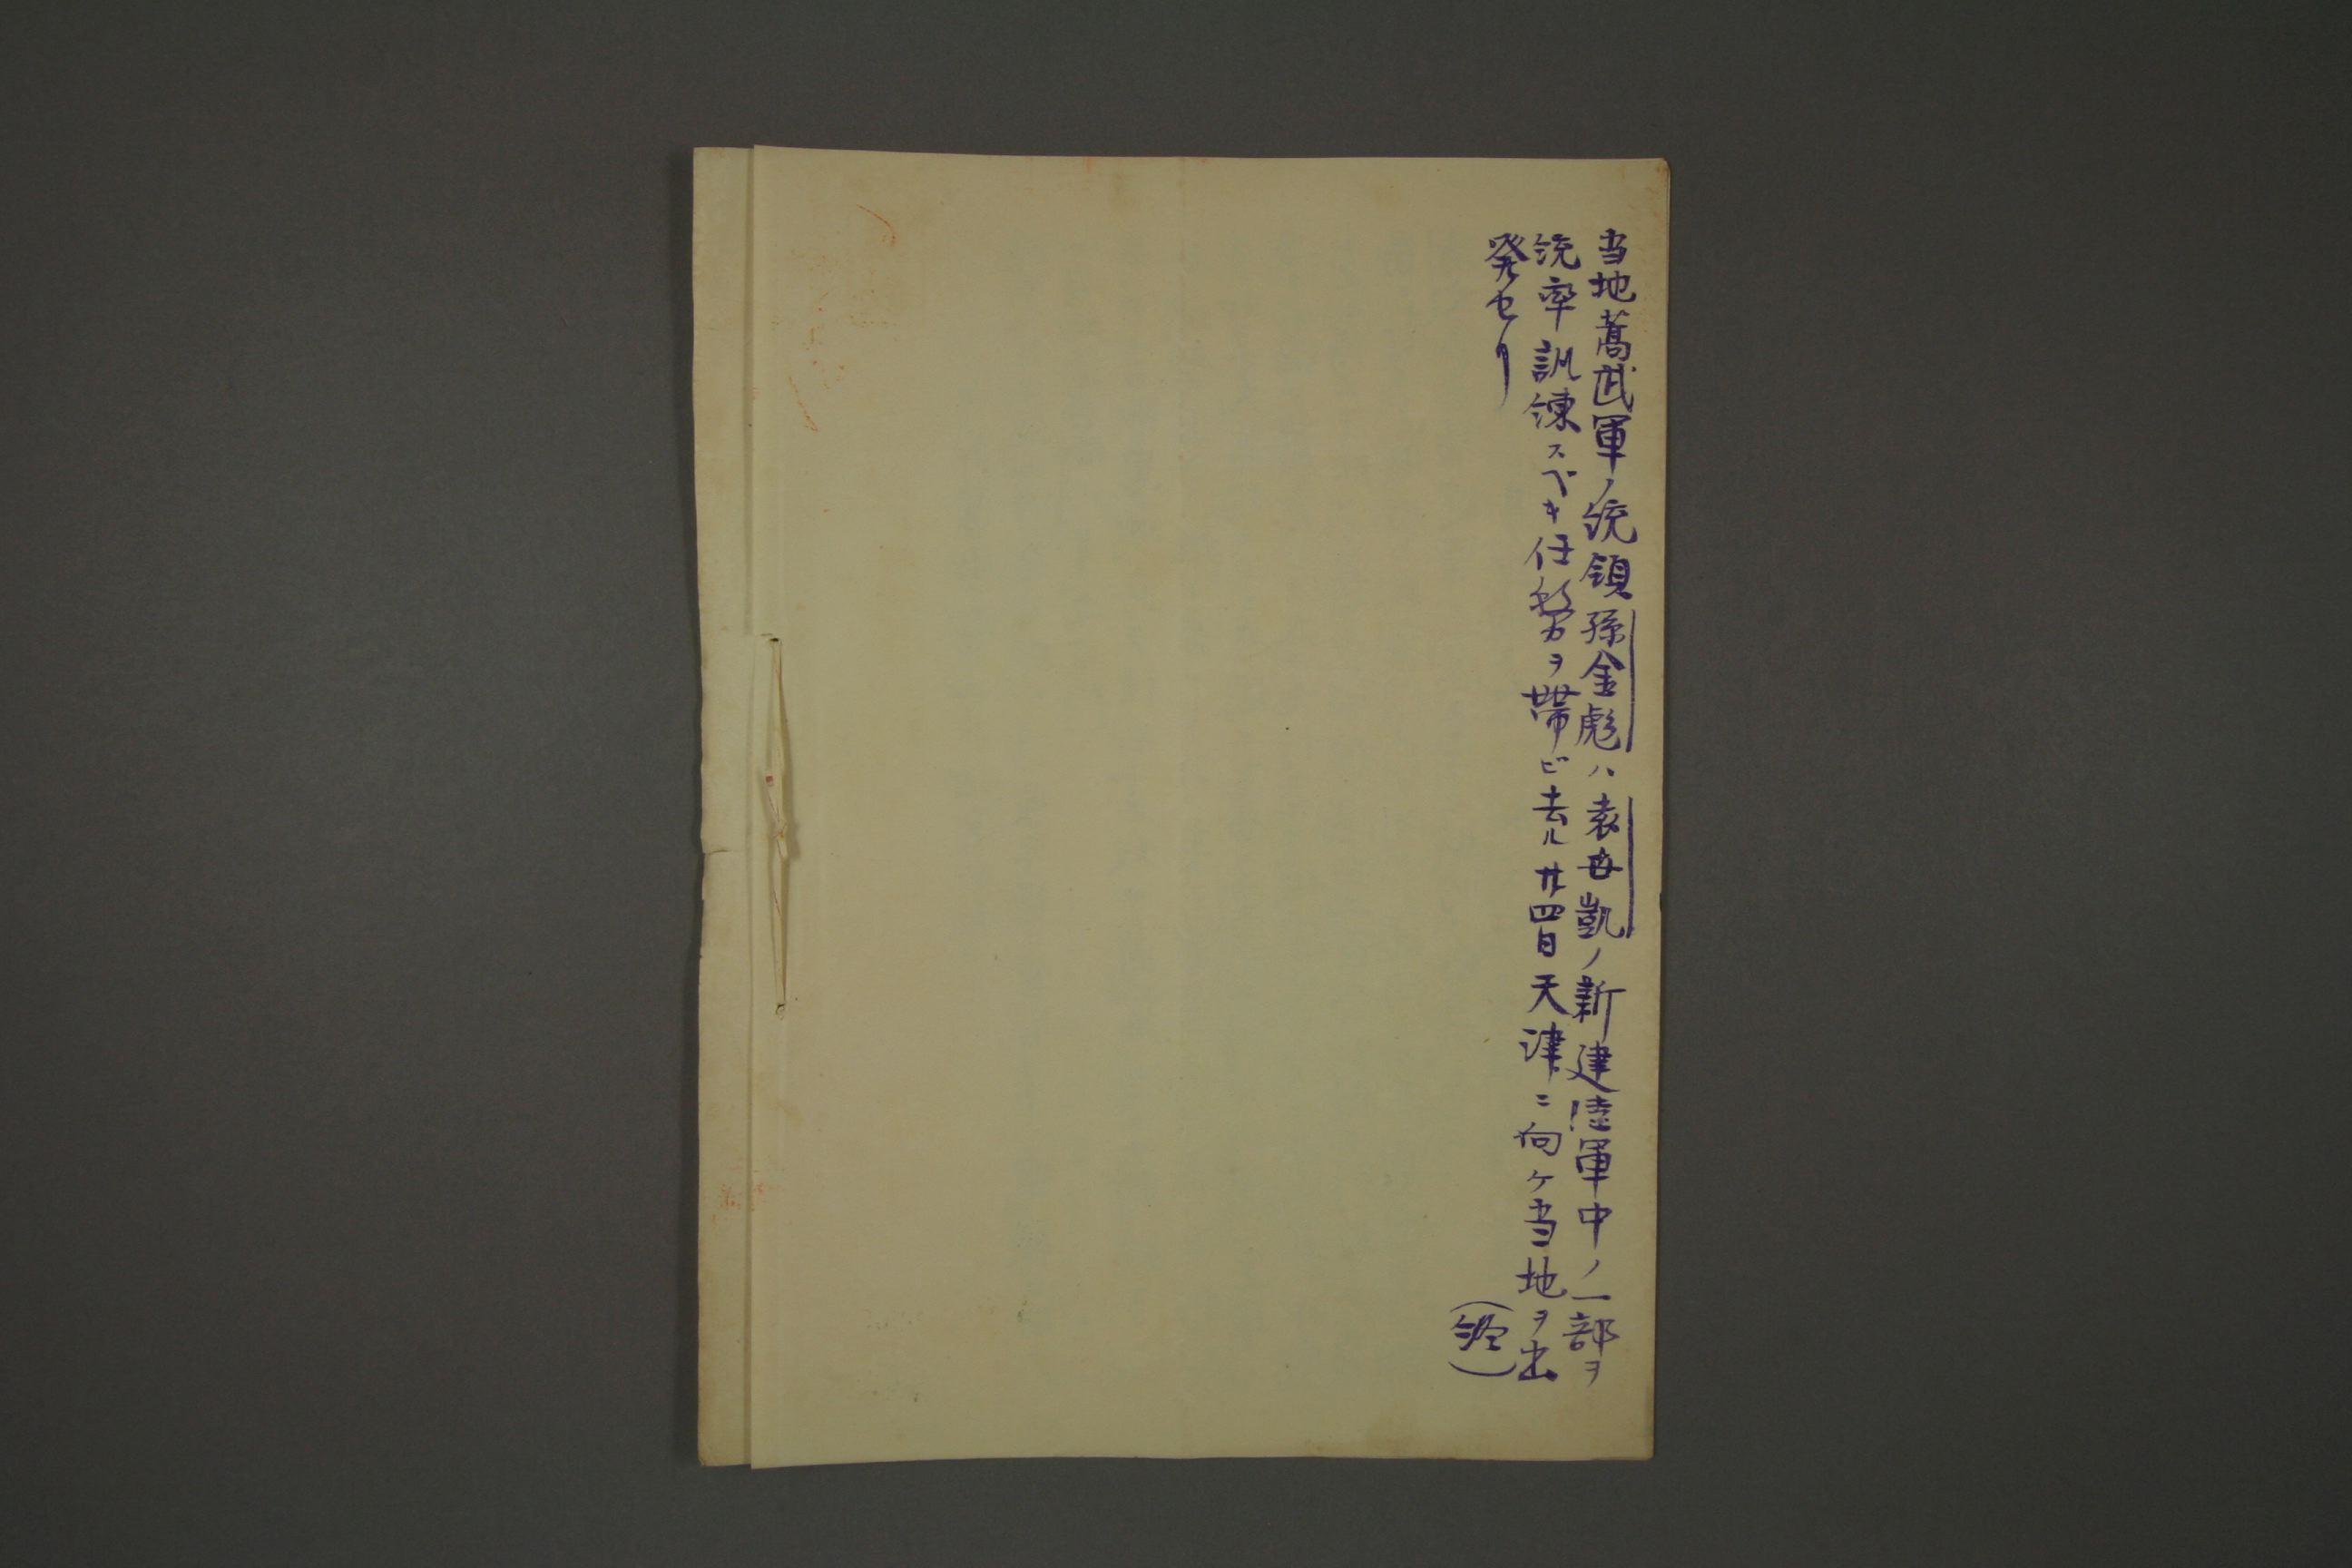 当地嵩武軍ノ統領孫金彪ハ袁世凱ノ新建陸軍中ノ一部ヲ
統率訓練スベキ任務ヲ帯ビ去ル廿四日天津ニ向ケ当地ヲ出
発セリ
(終)